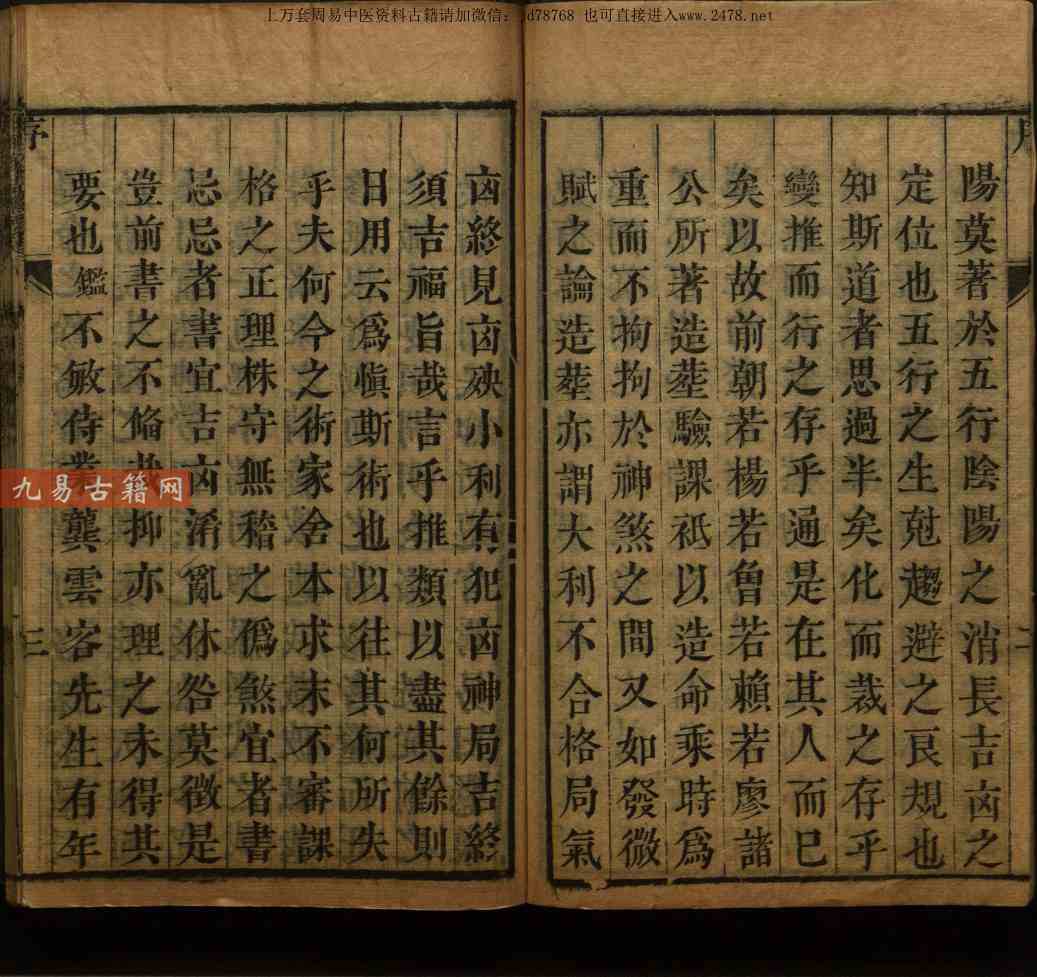 上万套周易中医资料古籍请加微信: jd78768 也可直接进入www.2478.net
陽莫著於五行陰陽之消長吉凶之
定位也五行之生尅趨避之良規也
知斯道者思過半矣化而裁之存乎
變推而行之存乎通是在其人而已
矣以故前朝若楊若曾若賴若廖諸
公所著造塟驗課祇以造命乘時爲
重而不拘拘於神煞之間又如發微
賦之論造塟亦謂大利不合格局氣
二
凶終見凶殃小利有犯凶神局吉終
須吉福旨哉言乎推類以盡其餘則
日用云爲愼斯術也以往其何所失
乎夫何今之術家舍本求末不審課
格之正理株守無稽之僞煞宜者書
忌忌者書宜吉凶淆亂休咎莫徵是
豈前書之不偹哉抑亦理之未得其
要也鑑不敏侍業龔雲客先生有年
序
三
九易古籍网